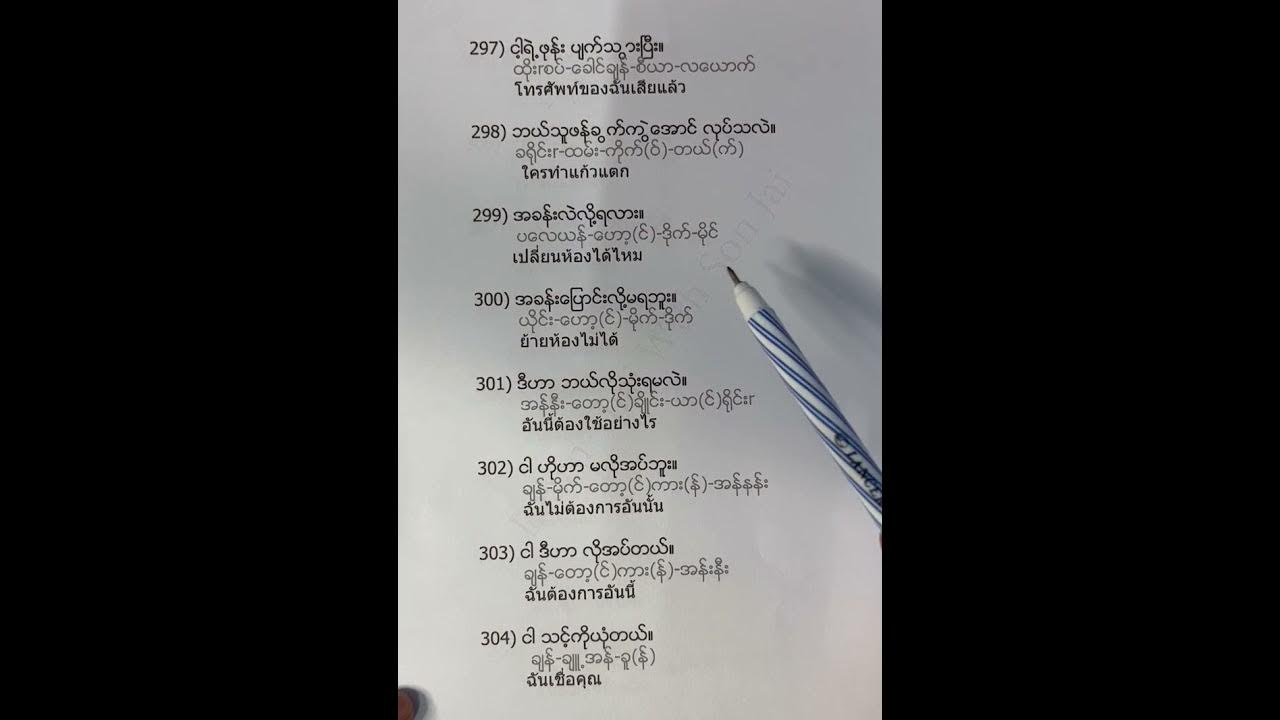 297) ငါ့ရဲ့ဖုန်း ပျက်သွားပြီး။
ထိုးrစပ်-ခေါင်ချန်-စီယာ-လယောက်
โทรศัพท์ของฉันเสียแล้ว
298) ဘယ်သူဖန်ခွက်ကွဲအောင် လုပ်သလဲ။
ခရိုင်းr-ထမ်း-ကိုက်(ဝ်)-တယ်(က်)
ใครทำแก้วแตก
299) အခန်းလဲလို့ရလား။
ပလေယန်-ဟော့(င်)-ဒိုက်-မိုင်
เปลี่ยนห้องได้ไหม
300) အခန်းပြောင်းလို့မရဘူး။
ယိုင်း-ဟော့(င်)-မိုက်-ဒိုက်
ย้ายห้องไม่ได้
301) ဒီဟာ ဘယ်လိုသုံးရမလဲ။
အန်နီး-တော့(င်)ချိုင်း-ယာ(င်)ရိုင်းr
อันนี้ต้องใช้อย่างไร
302) ငါ ဟိုဟာ မလိုအပ်ဘူး။
ချန်-မိုက်-တော့(င်)ကား(န်)-အန်နန်း
ฉันไม่ต้องการอันนั้น
303) ငါ ဒီဟာ လိုအပ်တယ်။
ချန်-တော့(င်)ကား(န်)-အန်းနီး
ฉันต้องการอันนี้
304) ငါ သင့်ကိုယုံတယ်။
ချန်-ချူ့အန်-ခူ(န်)
ฉันเชื่อคุณ
Son Jai